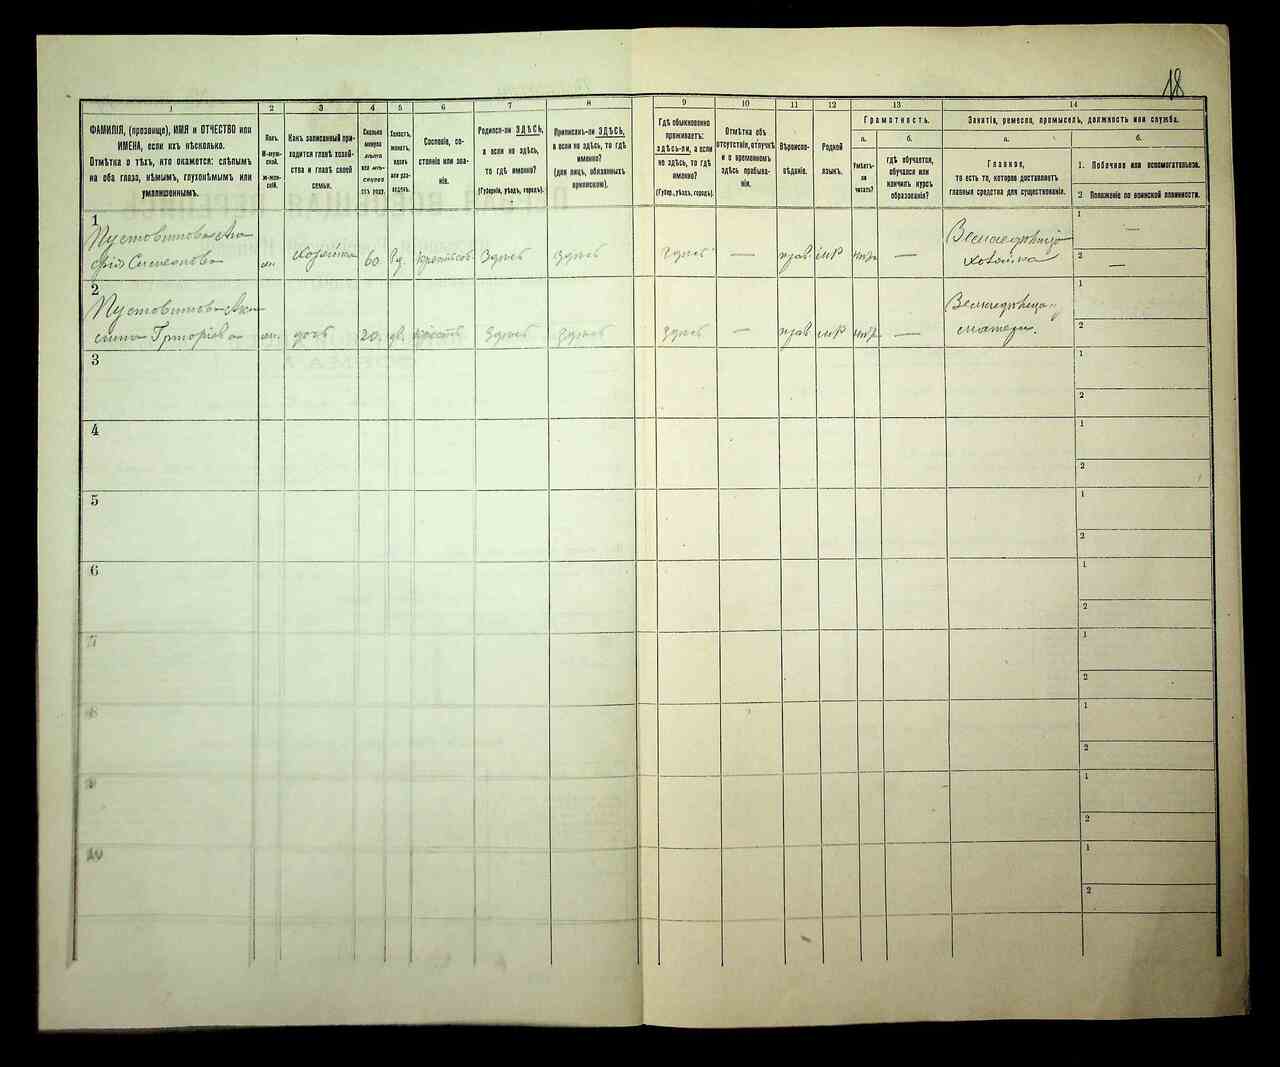 18
1
2
3
4
5
6
7
8
9
10
11
12
13
14
ФАМИЛІЯ, (прозвище), ИМЯ и ОТЧЕСТВО или
ИМЕНА, если ихъ нѣсколько.
Отмѣтка о тѣхъ, кто окажется: слѣпымъ
на оба глаза, нѣмымъ, глухонѣмымъ или
умалишеннымъ.
Полъ.
М-муж-
ской.
ж-жен-
скій.
Какъ записанный при-
ходится главѣ хозяй-
ства и главѣ своей
семьи.
Сколько
минуло
лѣтъ
или мѣ-
сяцевъ
отъ роду.
Холостъ,
женатъ,
вдовъ
или раз-
веденъ.
Сословіе, со-
стояніе или зва-
ніе.
Родился-ли ЗДѢСЬ,
а если не здѣсь,
то гдѣ именно?
(Губернія, уѣздъ, городъ).
Приписанъ-ли ЗДѢСЬ,
а если не здѣсь, то гдѣ
именно?
(для лицъ, обязанныхъ
припискою).
Гдѣ обыкновенно
проживаетъ:
здѣсь-ли, а если
не здѣсь, то гдѣ
именно?
(Губер., уѣздъ, городъ).
Отмѣтка объ
отсутствіи, отлучкѣ
и о временномъ
здѣсь пребыва-
ніи.
Вѣроиспо-
вѣданіе.
Родной
языкъ.
Грамотность.
а.
б.
Умѣетъ-
ли
читать?
гдѣ обучается,
обучался или
кончилъ курсъ
образованія?
Занятіе, ремесло, промыселъ, должность или служба.
а.
б.
Главное,
то есть то, которое доставляетъ
главныя средства для существованія.
1. Побочное или вспомогательное.
2. Положеніе по воинской повинности.
1
Пустовитова
Семенова
жн.
Хозяйка
60
вд.
крестьян
Здѣсь
здѣсь
здѣсь
—
прав.
мр
нгр
—
Земледѣлица
хозяйка
1
—
2
—
2
Пустовитова
Григоріева
жн.
дочь
20.
дв.
крестьян
здѣсь
здѣсь
здѣсь
—
прав
мр
нгр
—
Земледѣлица
матери.
1
2
3
1
2
4
1
2
5
1
2
6
1
2
7
1
2
8
1
2
9
1
2
10
1
2